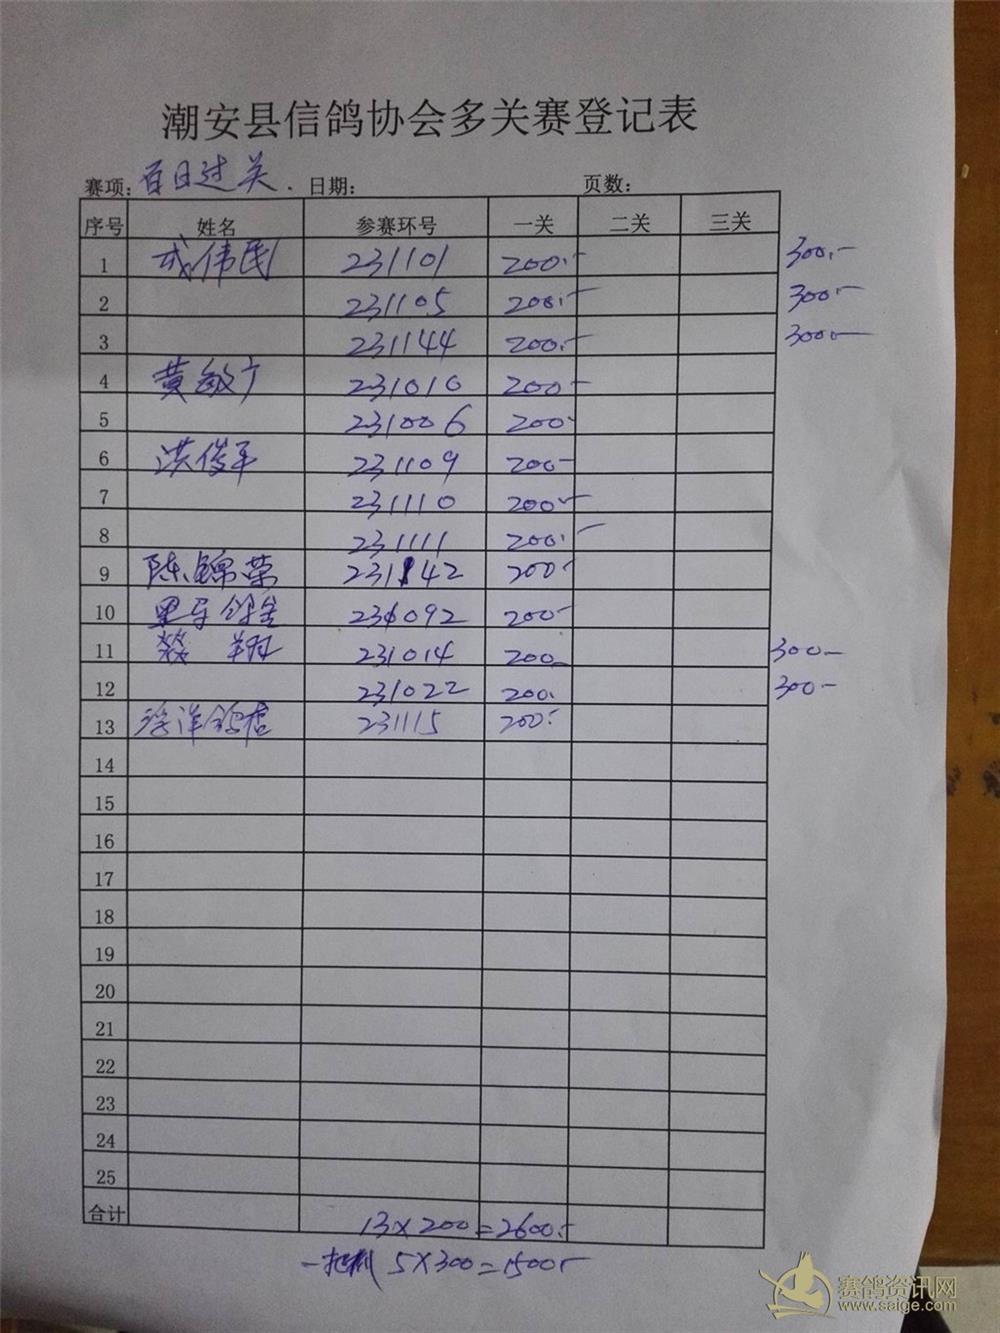 潮安县信鸽协会多关赛登记表
赛项: 百日过关. 日期: 页数:
序号 姓名 参赛环号 一关 二关 三关
1 成伟民 231101 200.- 300.-
2 231105 200.- 300.-
3 231144 200.- 300.-
4 黄敏广 231010 200-
5 231006 200-
6 洪俊平 231109 200-
7 231110 200.-
8 231111 200.-
9 陈锦荣 231142 200-
10 231092 200-
11 翔 231014 200- 300-
12 231022 200. 300-
13 浮洋鸽店 231115 200.-
14
15
16
17
18
19
20
21
22
23
24
25
合计 13×200=2600.-
一把抓 5×300=1500.-
赛鸽资讯网
www.saige.com